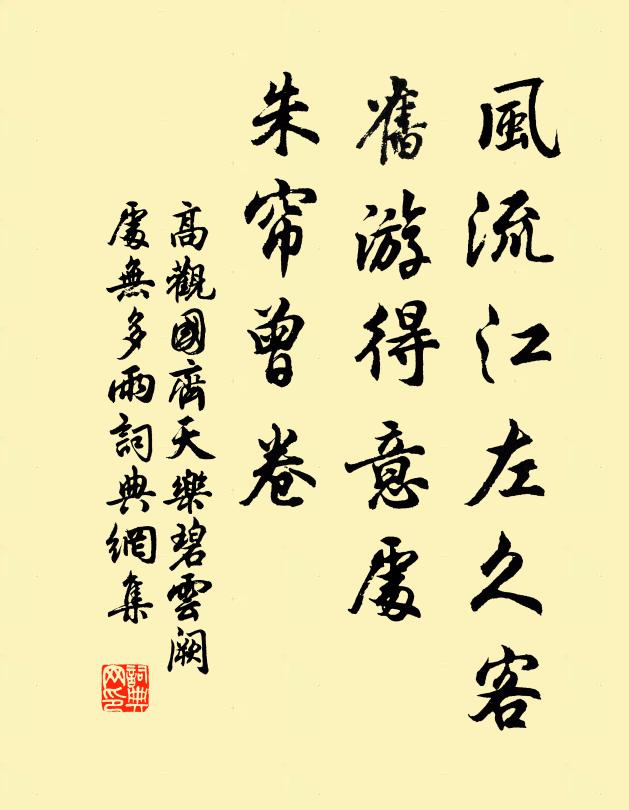 風流江左久客
舊游得意處
朱帘曾卷
高觀國齊天樂碧雲闕
處無多雨詞典網集
詞典網印